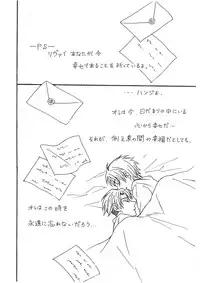 ―P.S―
リヴァイ あなたが今
幸せであることを祈っているよ。
…ハンジよ、
オレは今 日だまりの中にいる
心から幸せだ…
それが、例え束の間の幸福だとしても。
オレはこの時を
永遠に忘れないだろう…